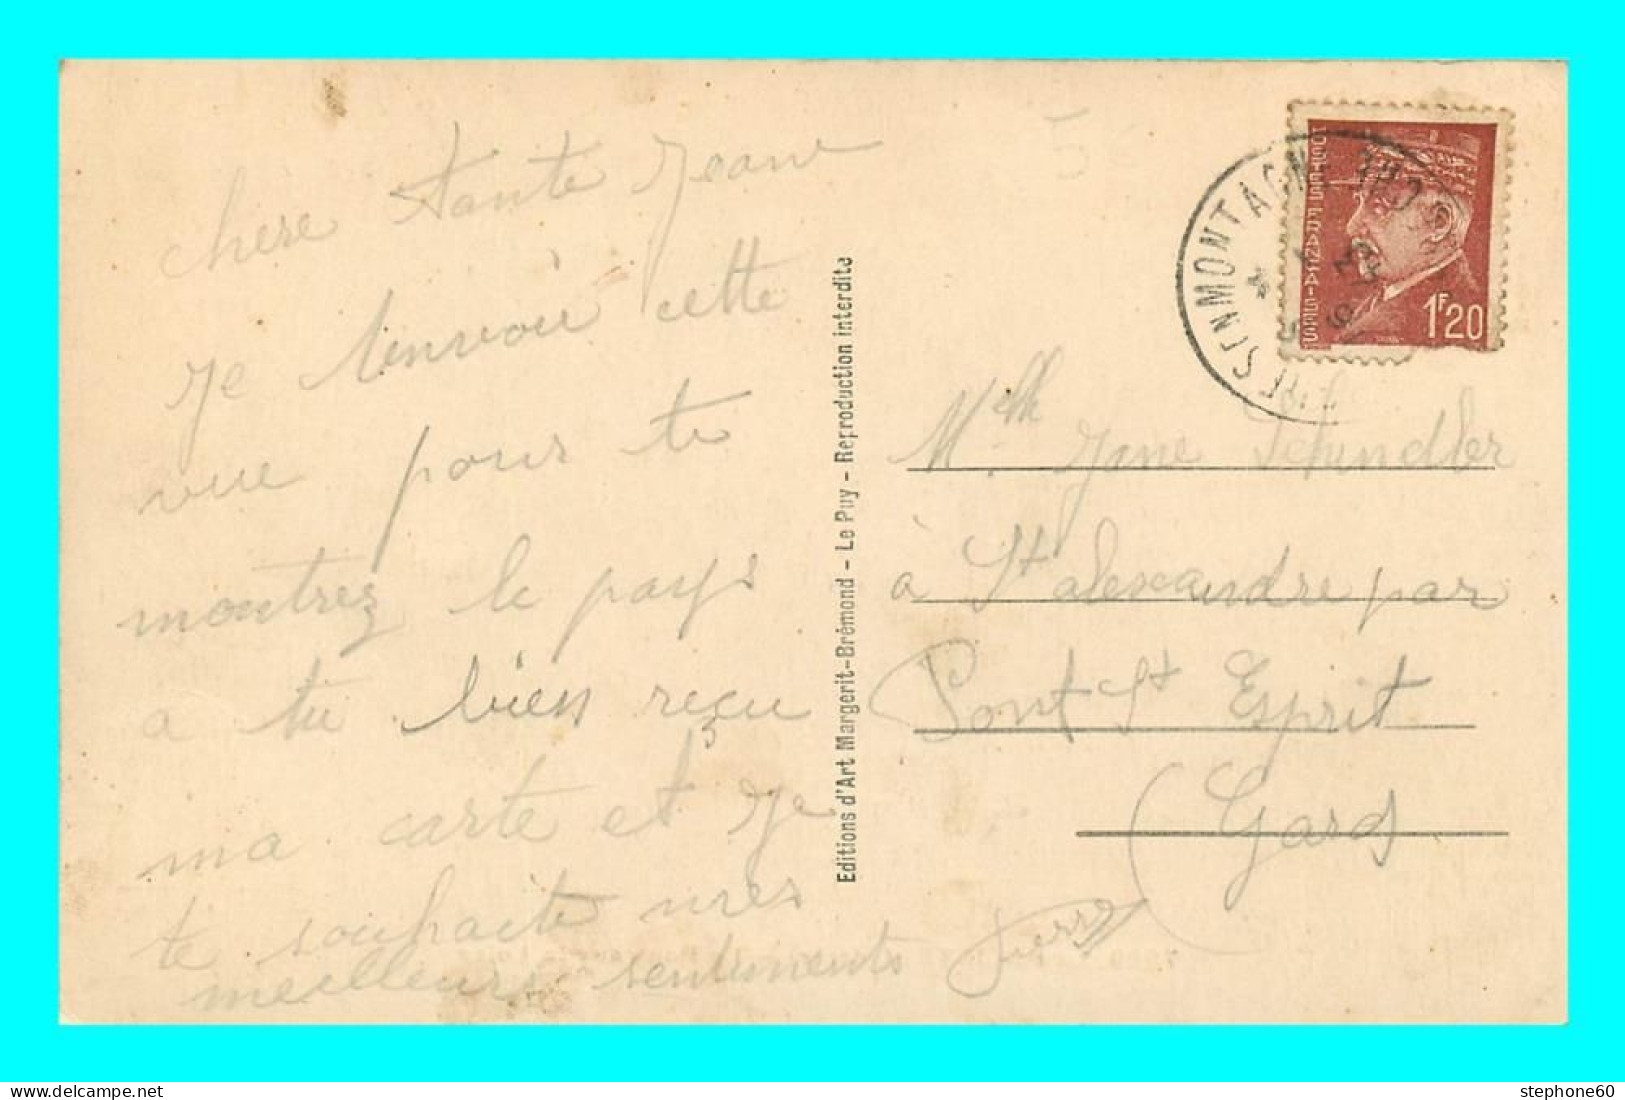 chere tante Jeane
Je t'envoie cette
vue pour te
montrez le pays
a tu bien reçu
ma carte et je
te souhaite mes
meilleurs sentiments Pierre
Editions d'Art Margerit-Brémond - Le Puy - Reproduction interdite
POSTES FRANÇAISES
1F20
MONTAGN
Melle Jane Schindler
à St alexandre par
Pont St Esprit
(Gard)
delcampe.net
stephone60